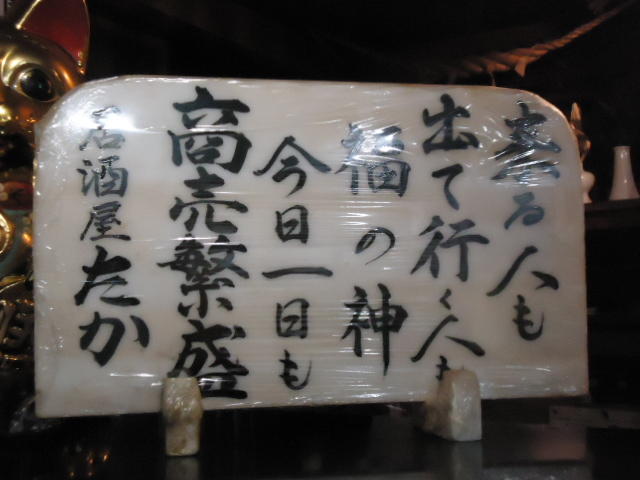 来る人も
出て行く人も
福の神
今日一日も
商売繁盛
居酒屋たか